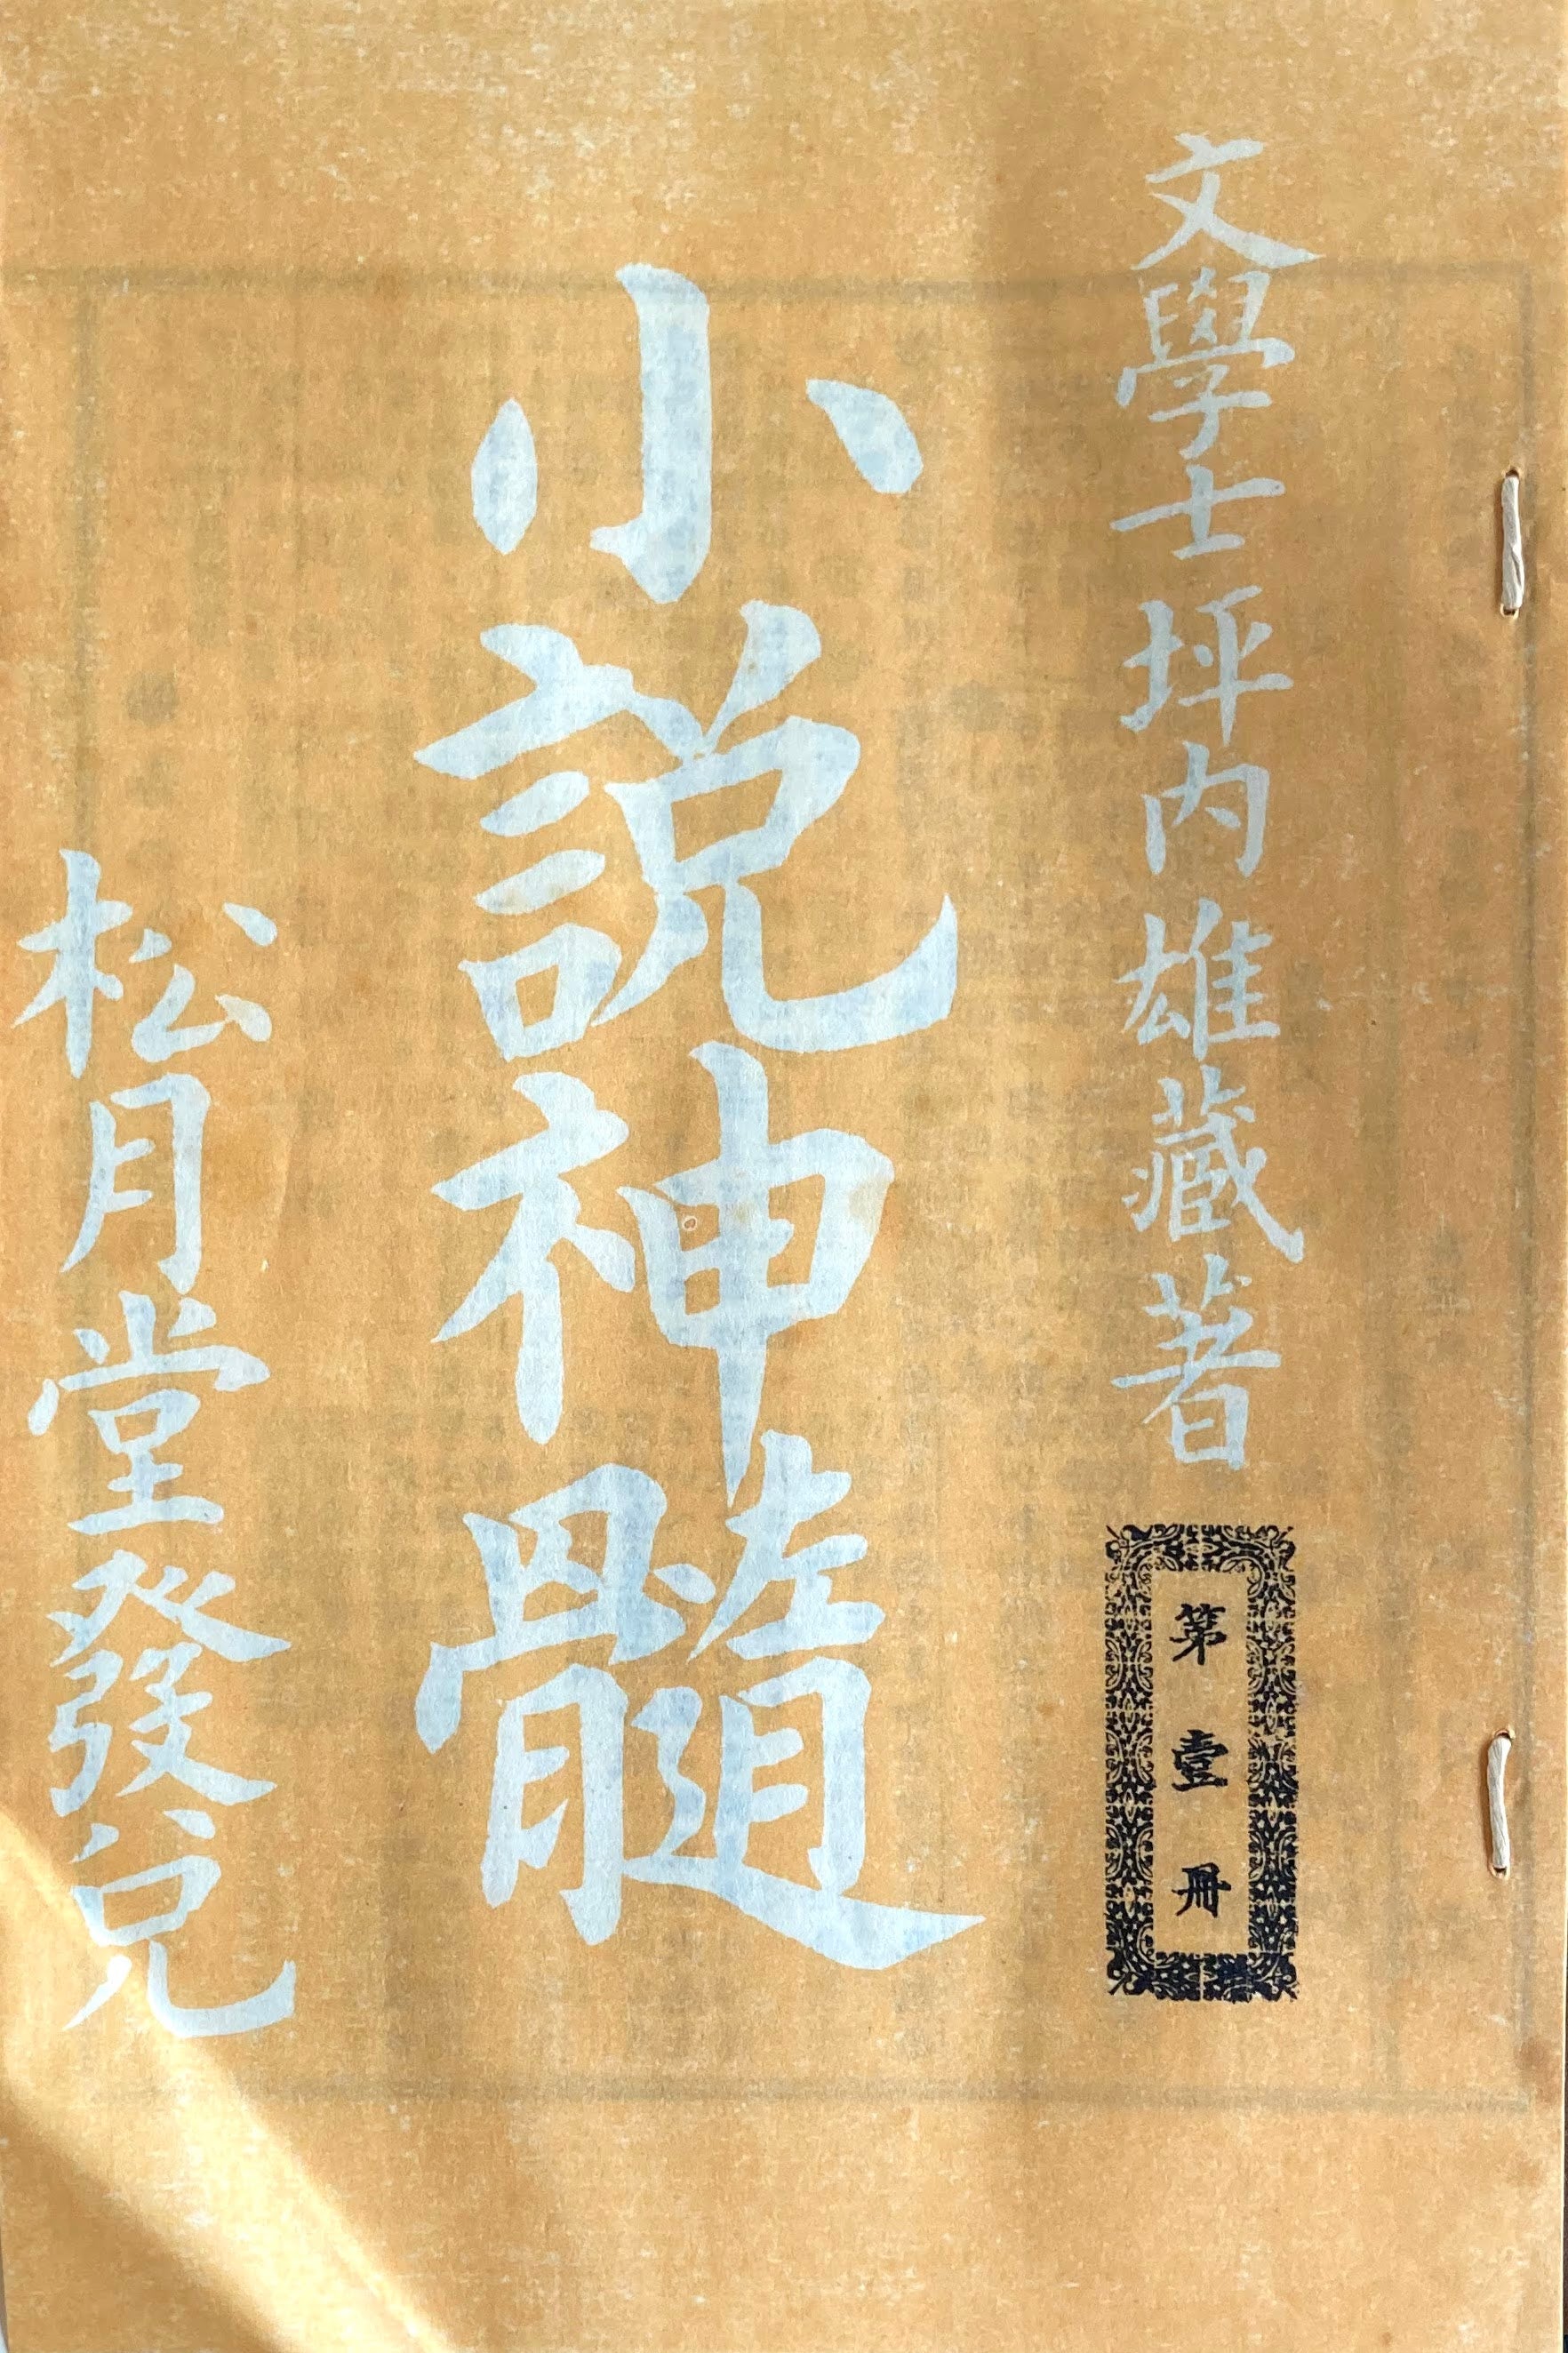 文學士坪内雄藏著
第壹冊
小說神髓
松月堂發兌